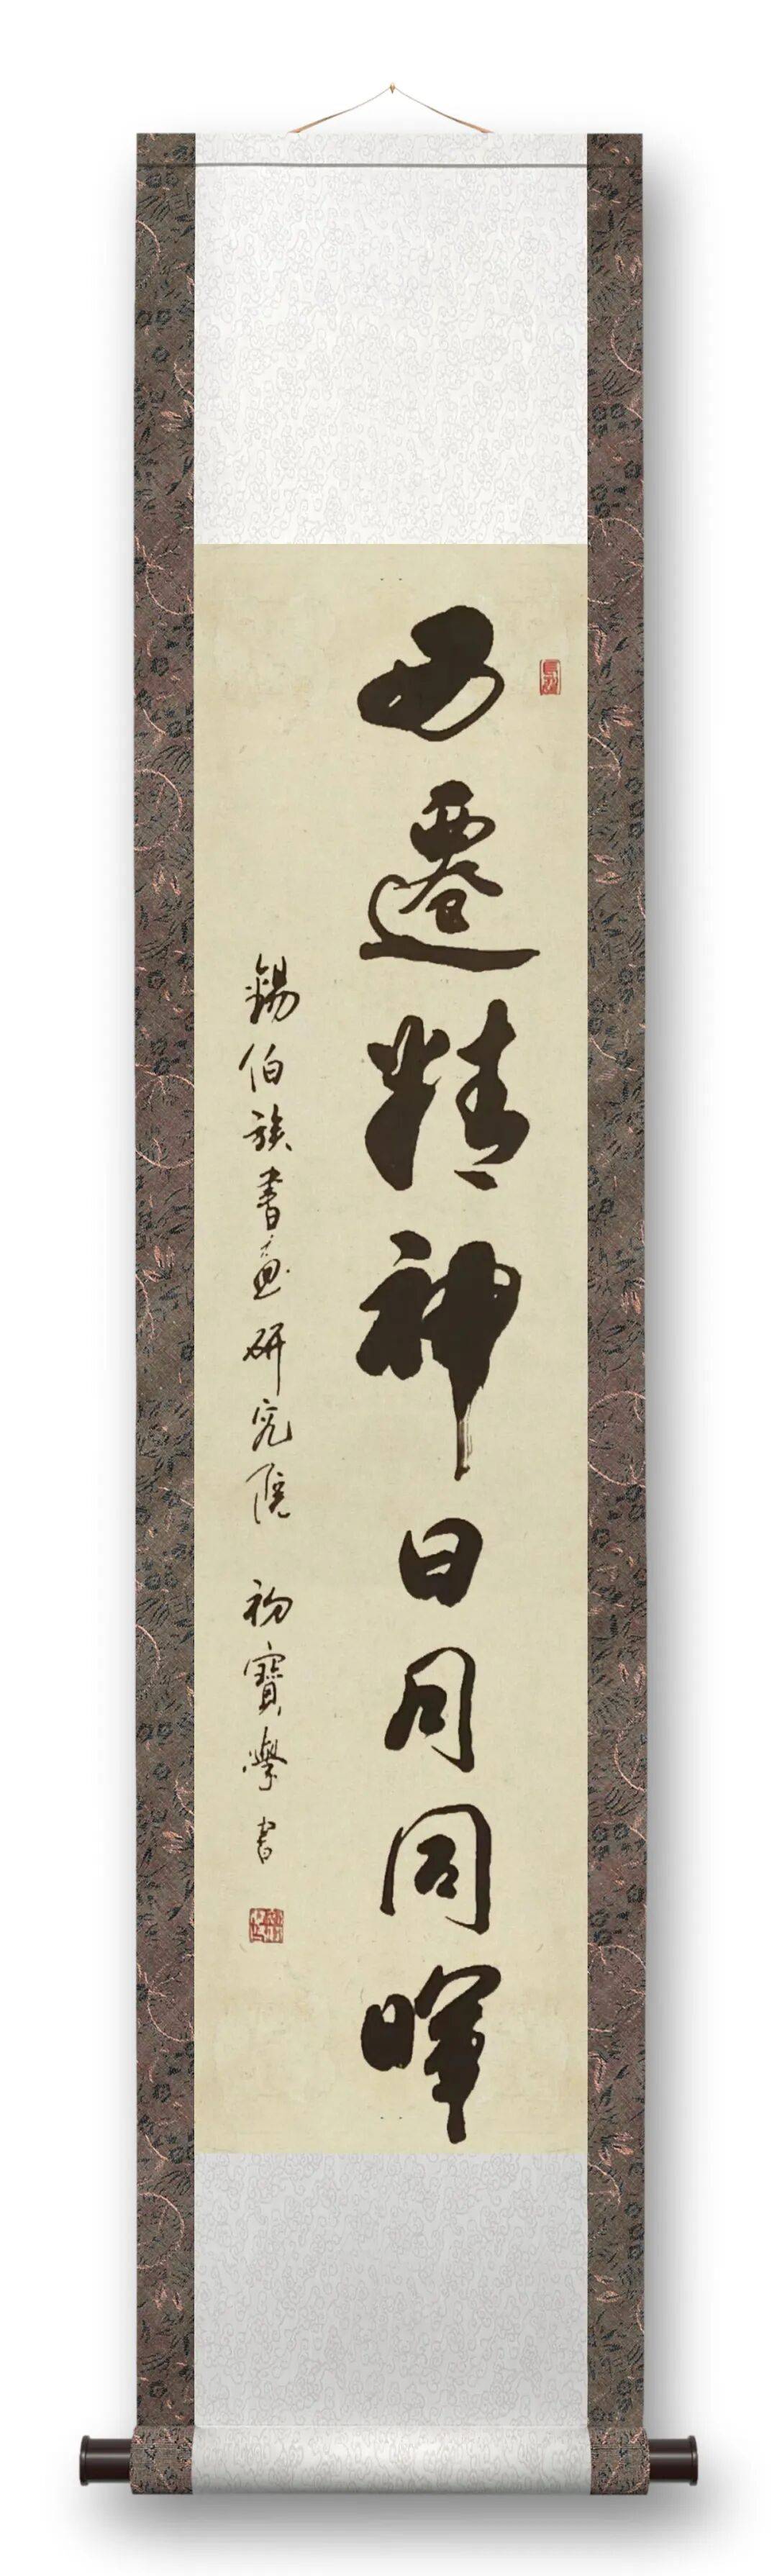 西遷精神日月同暉
錫伯族書画研究院 初寶學書